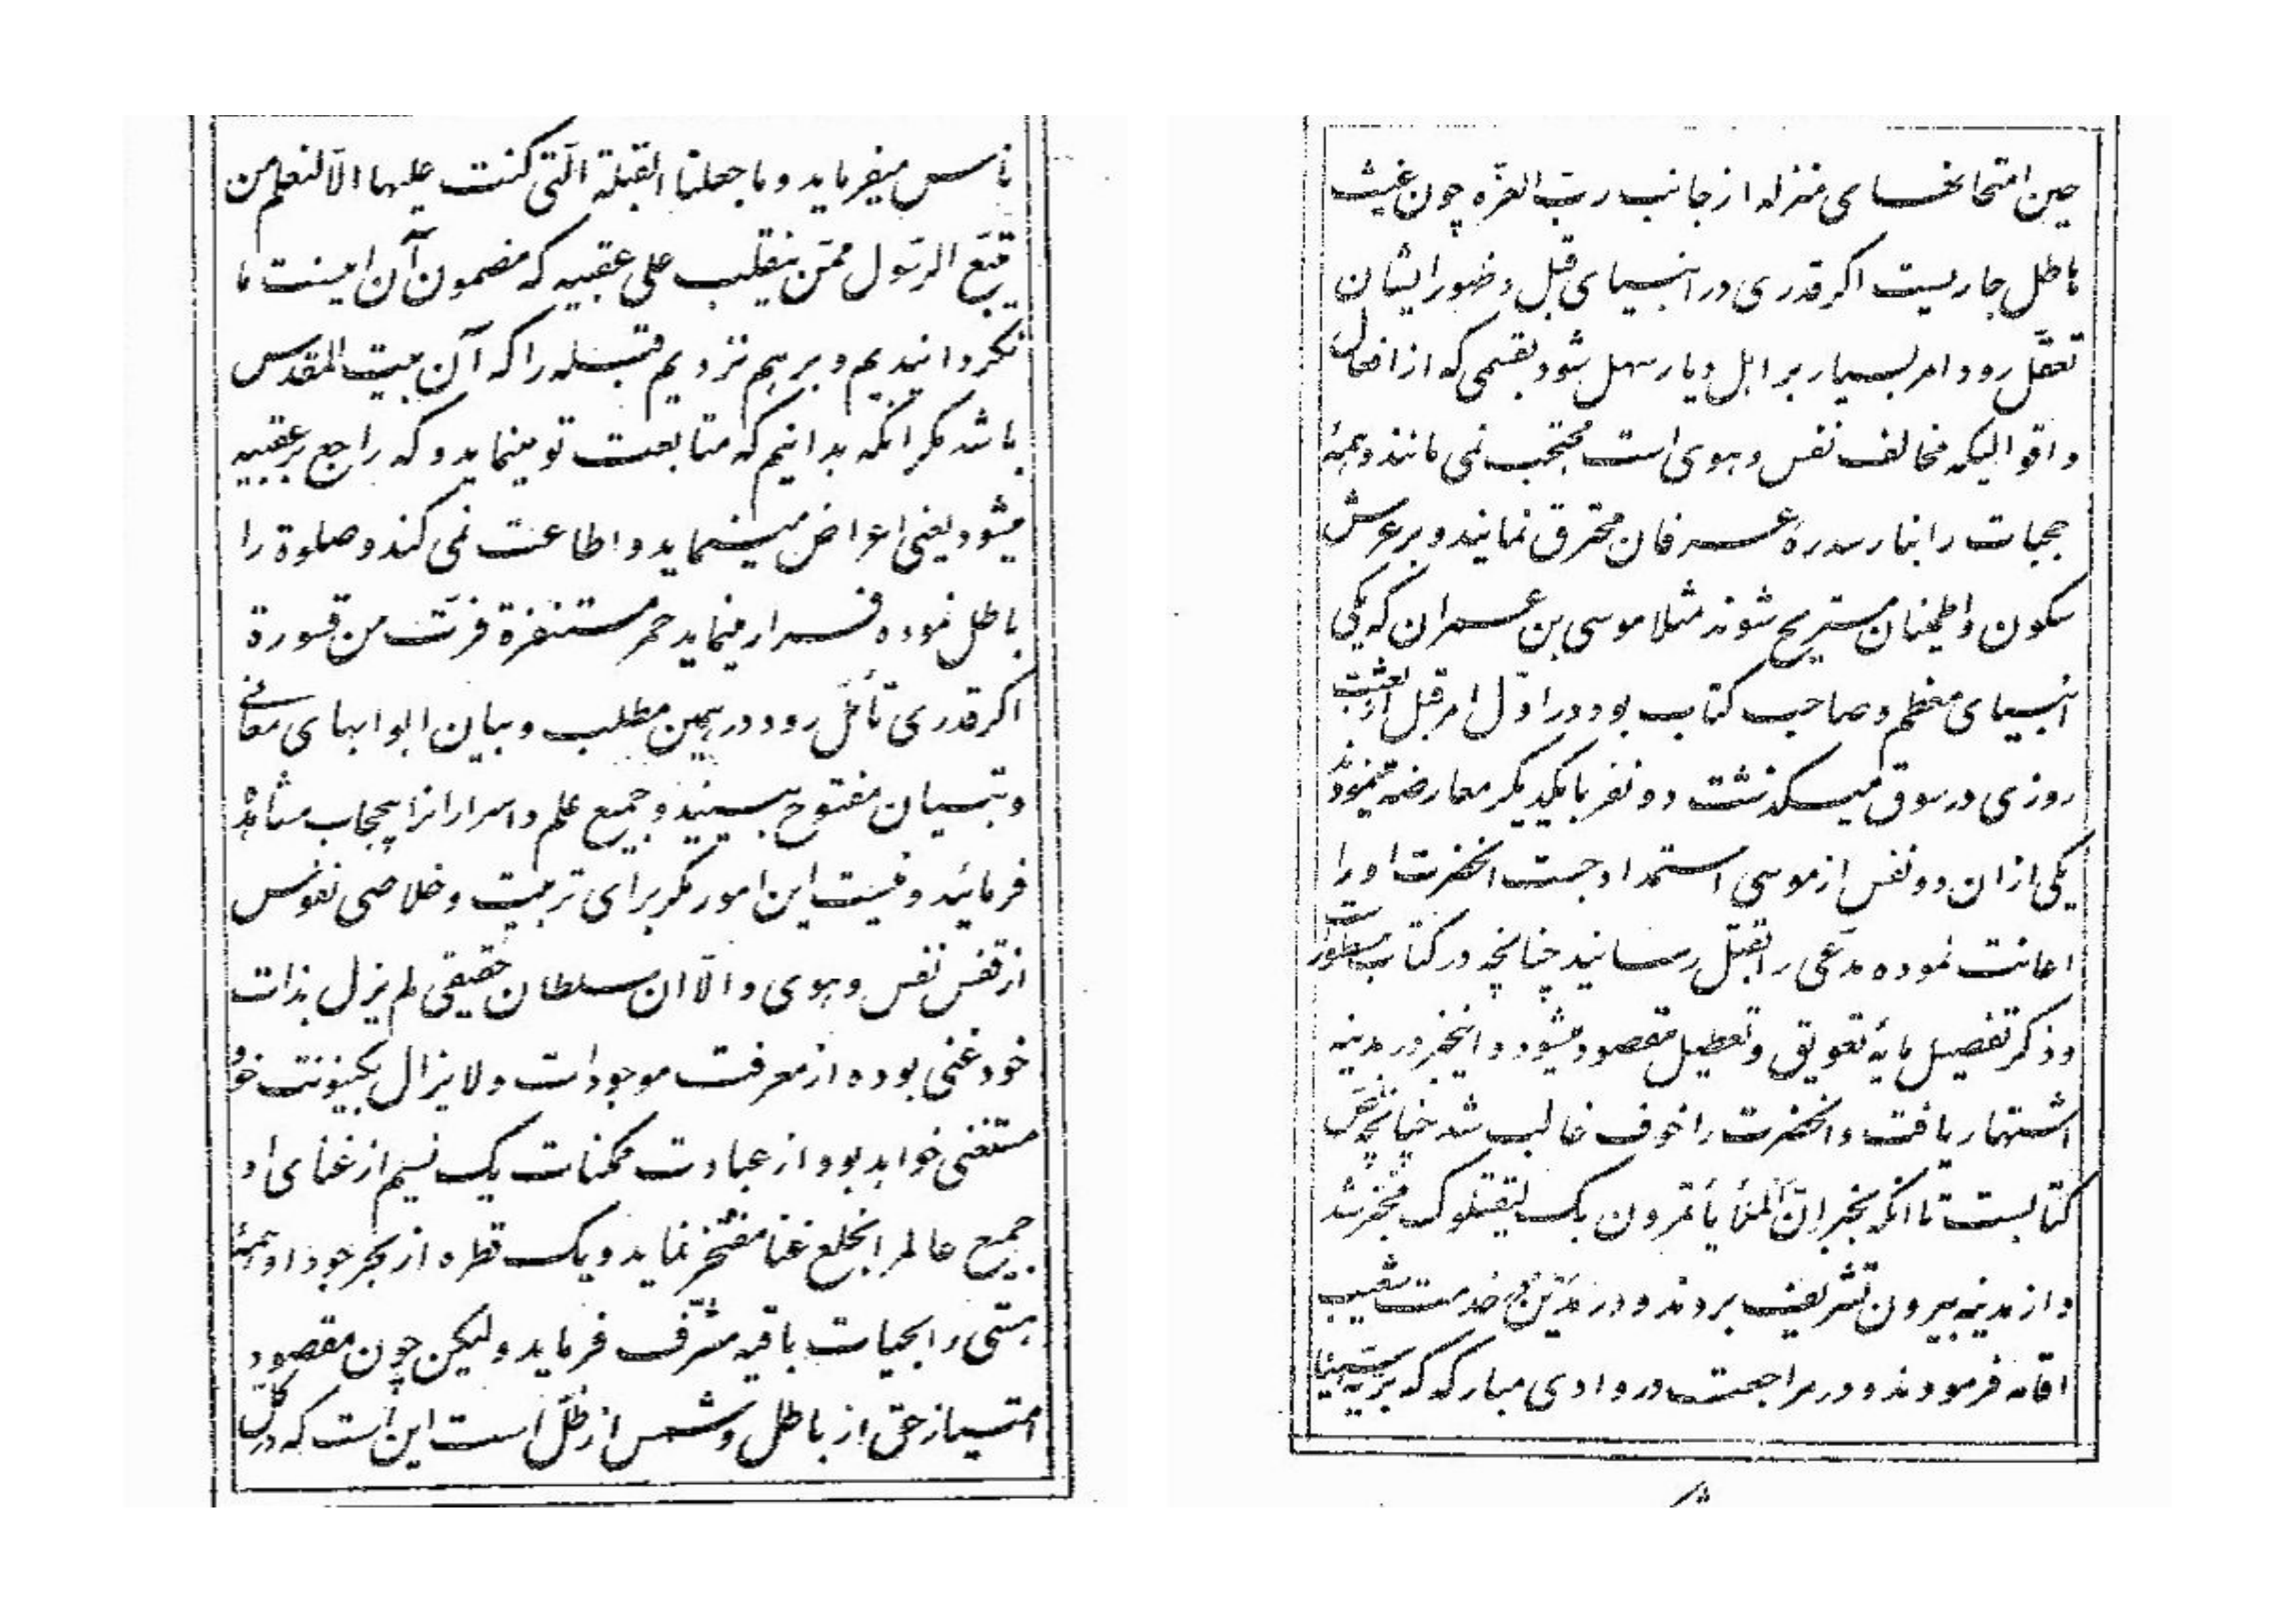 ناس میفرماید و ما جعلنا القبلة الّتی کنت علیها الّا لنعلم من
یتبع الرّسول ممّن ینقلب علی عقبیه که مضمون آن اینست ما
نگردانیدیم و برهم نزدیم قبله را که آن بیت المقدس
باشد مگر انکه بدانیم که متابعت تو مینماید و که راجع بر عقبیه
میشود یعنی اعراض مینماید و اطاعت نمی کند و صلوة را
باطل نموده فرار مینماید حمر مستنفرة فرّت من قسورة
اکر قدری تأمّل رود در همین مطلب و بیان ابوابهای معانی
و تبیان مفتوح ببینید و جمیع علم و اسرار انرا بیحجاب مشاهد
فرمائید و نیست این امور مگر برای تربیت و خلاصی نفوس
از قفس نفس و هوی و الّا ان سلطان حقیقی لم یزل بذات
خود غنی بوده از معرفت موجودات و لا یزال بکینونت خود
مستغنی خواهد بود از عبادت ممکنات یک نسیم از غنای او
جمیع عالم را بخلع غنا مفتخر نماید و یک قطره از بحر جود او همه
هستی را بحیات باقیه مشرّف فرماید و لیکن چون مقصود
امتیاز حق از باطل و شمس از ظلّ است این است که در کلّ
حین امتحانهای منزله از جانب ربّ العزّه چون غیث
هاطل جاریست اکر قدری در انبیای قبل و ظهور ایشان
تعقّل رود امر بسیار بر اهل دیار سهل شود بقسمی که از افعال
و اقوالیکه مخالف نفس و هوی است محتجب نمی مانند و همه
حجبات را بنار سدره عرفان محترق نمایند و بر عرش
سکون و اطمینان مستریح شوند مثلا موسی بن عمران که یکی
انبیای معظم و صاحب کتاب بود در اوّل امر قبل از بعثت
روزی در سوق میگذشت دو نفر با یکدیگر معارضه مینمودند
یکی ازان دو نفس از موسی استمداد جست انحضرت او را
اعانت نموده مدعی را بقتل رسانید چنانچه در کتاب مسطور است
و ذکر تفصیل مایه تعویق و تعطیل مقصود میشود و اینخبر در مدینه
اشتهار یافت و انحضرت را خوف غالب شد چنانچه نصّ
کتابست تا انکه بخبر انّ الملأ یأتمرون بک لیقتلوک مخبر شد
و از مدینه بیرون تشریف بردند و در مدین در خدمت شعیب
اقامه فرمودند و در مراجعت در وادی مبارکه که بریّه سینا